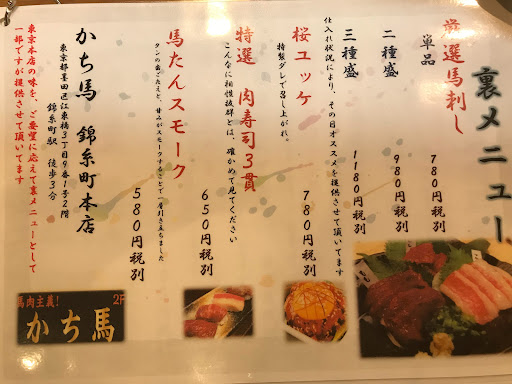 裏メニュー
厳選馬刺し
単品 780円税別
二種盛 980円税別
三種盛 1180円税別
仕入れ状況により、その日オススメを提供させて頂いてます
桜ユッケ 780円税別
特製ダレで召し上がれ。
特選 肉寿司3貫 650円税別
こんなに相性抜群とは、確かめて見てください
馬たんスモーク 580円税別
タンの歯ごたえと、甘みがスモークすることで一層引き立ちました
かち馬 錦糸町本店
東京都墨田区江東橋3丁目9番1号2階
錦糸町駅 徒歩3分
東京本店の味を、ご要望に応えて裏メニューとして
一部ですが提供させて頂いてます
馬肉主義!
2F
かち馬